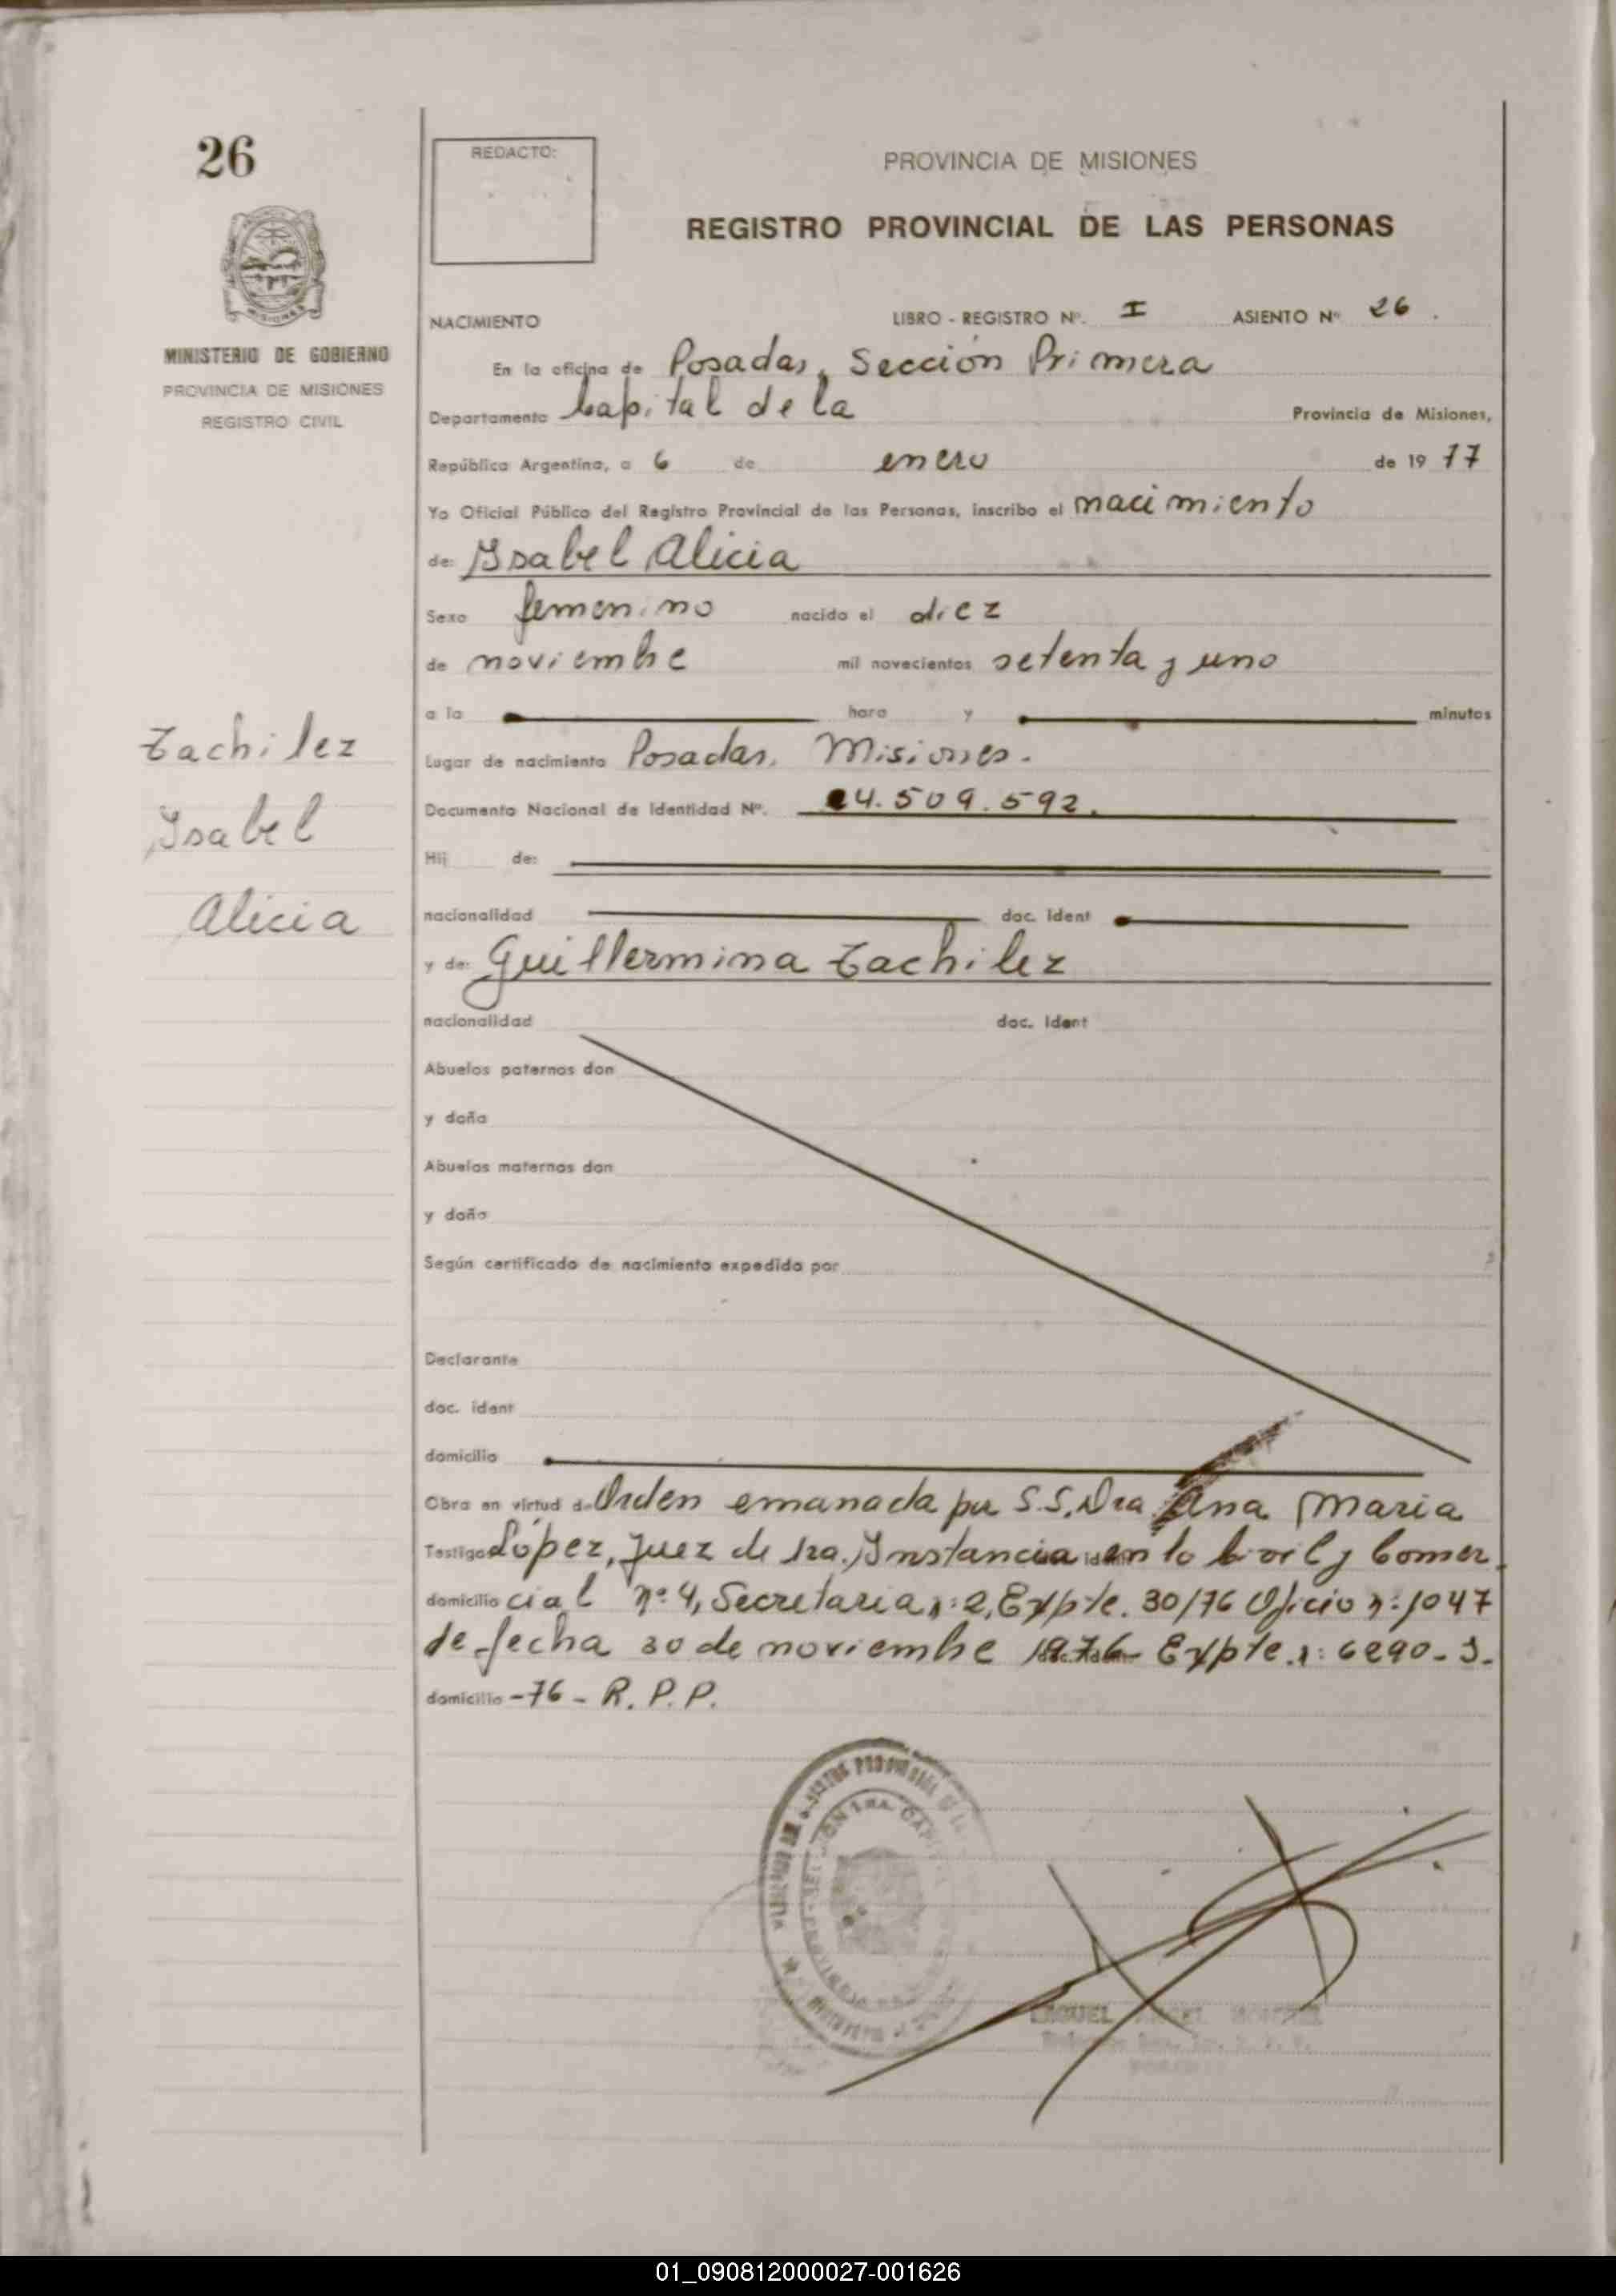 26
REDACTO:
PROVINCIA DE MISIONES
REGISTRO PROVINCIAL DE LAS PERSONAS
MISIONES
MINISTERIO DE GOBIERNO
PROVINCIA DE MISIONES
REGISTRO CIVIL
NACIMIENTO LIBRO - REGISTRO Nº. I ASIENTO Nº 26.
En la oficina de Posadas, Sección Primera
Departamento Capital de la Provincia de Misiones,
República Argentina, a 6 de enero de 19 77
Yo Oficial Público del Registro Provincial de las Personas, inscribo el nacimiento
de: Ysabel Alicia
Sexo femenino nacido el diez
de noviembre mil novecientos setenta y uno
a la hora y minutos
Tachilez
Ysabel
Alicia
Lugar de nacimiento Posadas, Misiones.
Documento Nacional de Identidad Nº. 24.509.592.
Hij de:
nacionalidad doc. ident
y de: Guillermina Tachilez
nacionalidad doc. ident
Abuelos paternos don
y doña
Abuelos maternos don
y doña
Según certificado de nacimiento expedido por
Declarante
doc. ident
domicilio
Obra en virtud de Orden emanada por S.S. Dra Ana Maria
Testigos López, Juez de 1ra. Ynstancia en lo Civil y Comer
domicilio cial nº 4, Secretaria nº 2, Expte. 30/76 Oficio nº 1047
de fecha 30 de noviembre 1976 Expte. nº 6290-S-
domicilio -76- R.P.P.
01_090812000027-001626